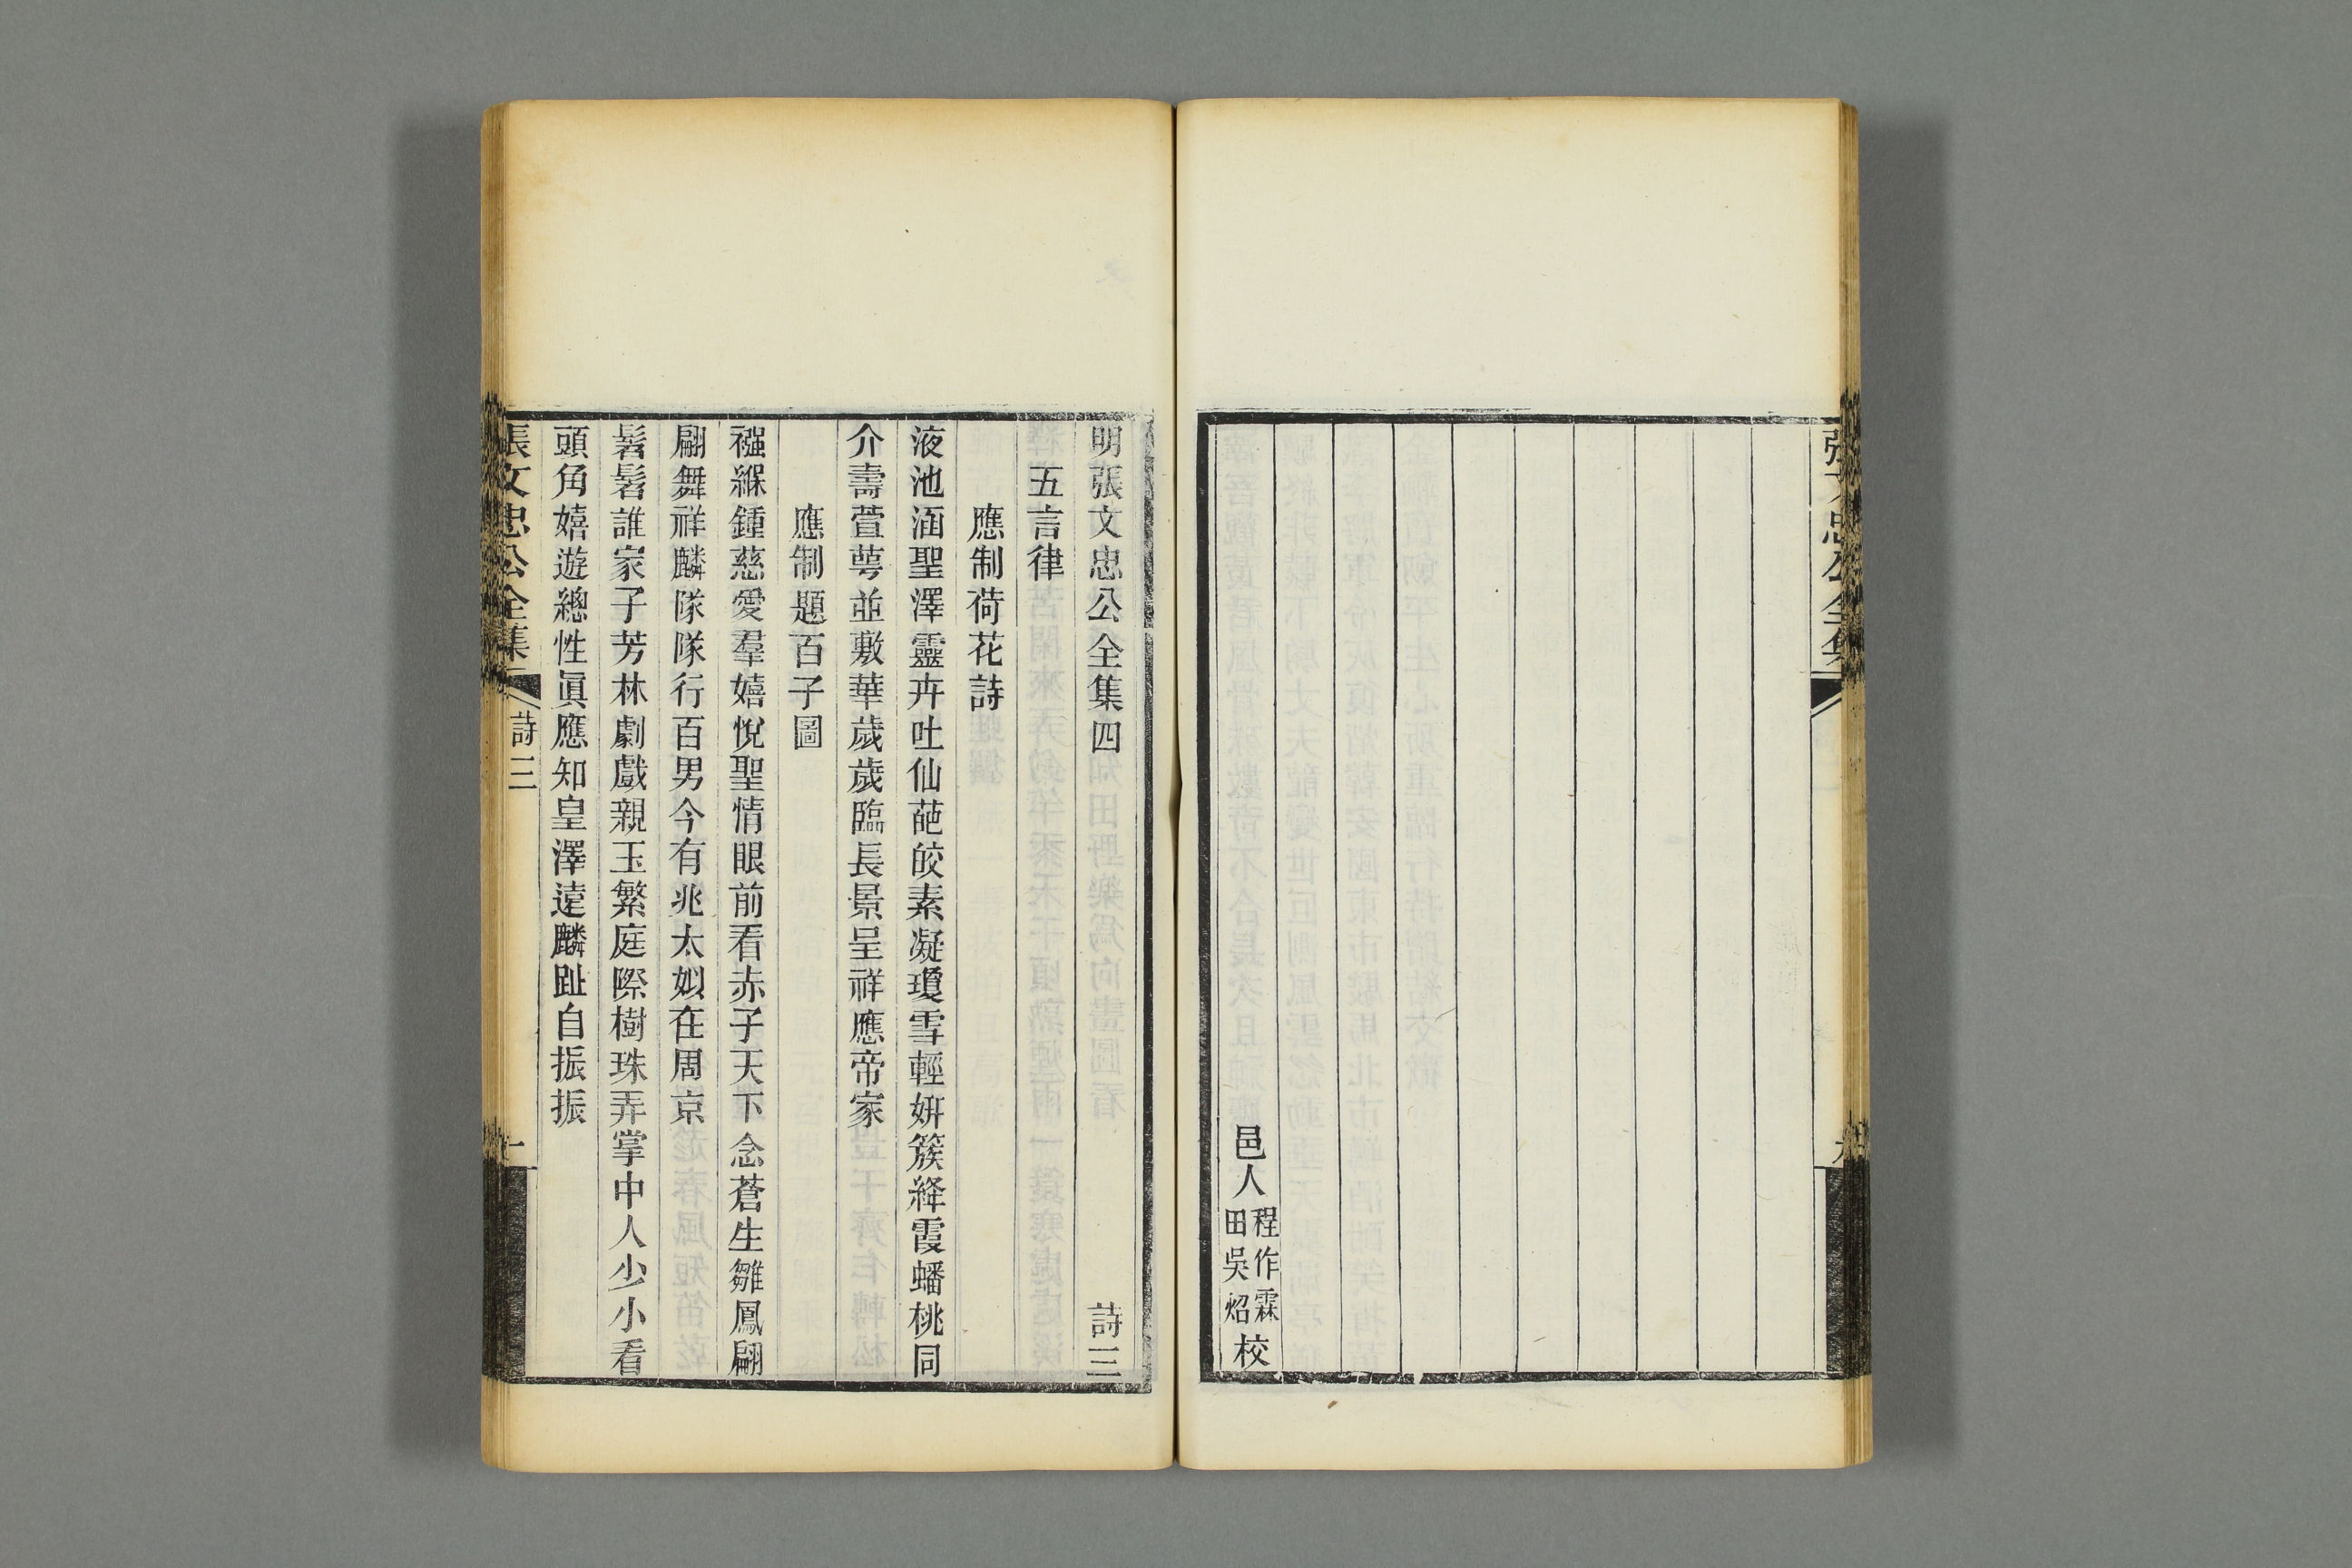 張文忠公全集
九
邑人程作霖田吳炤校
明張文忠公全集四 詩三
五言律
應制荷花詩
液池涵聖澤靈卉吐仙葩皎素凝瓊雪輕妍簇絳霞蟠桃同
介壽萱萼並敷華歲歲臨長景呈祥應帝家
應制題百子圖
襁緥鍾慈愛羣嬉悅聖情眼前看赤子天下念蒼生雛鳳翩
翩舞祥麟隊隊行百男今有兆太姒在周京
髫髫誰家子芳林劇戲親玉繁庭際樹珠弄掌中人少小看
頭角嬉遊總性眞應知皇澤遠麟趾自振振
張文忠公全集 詩三 一